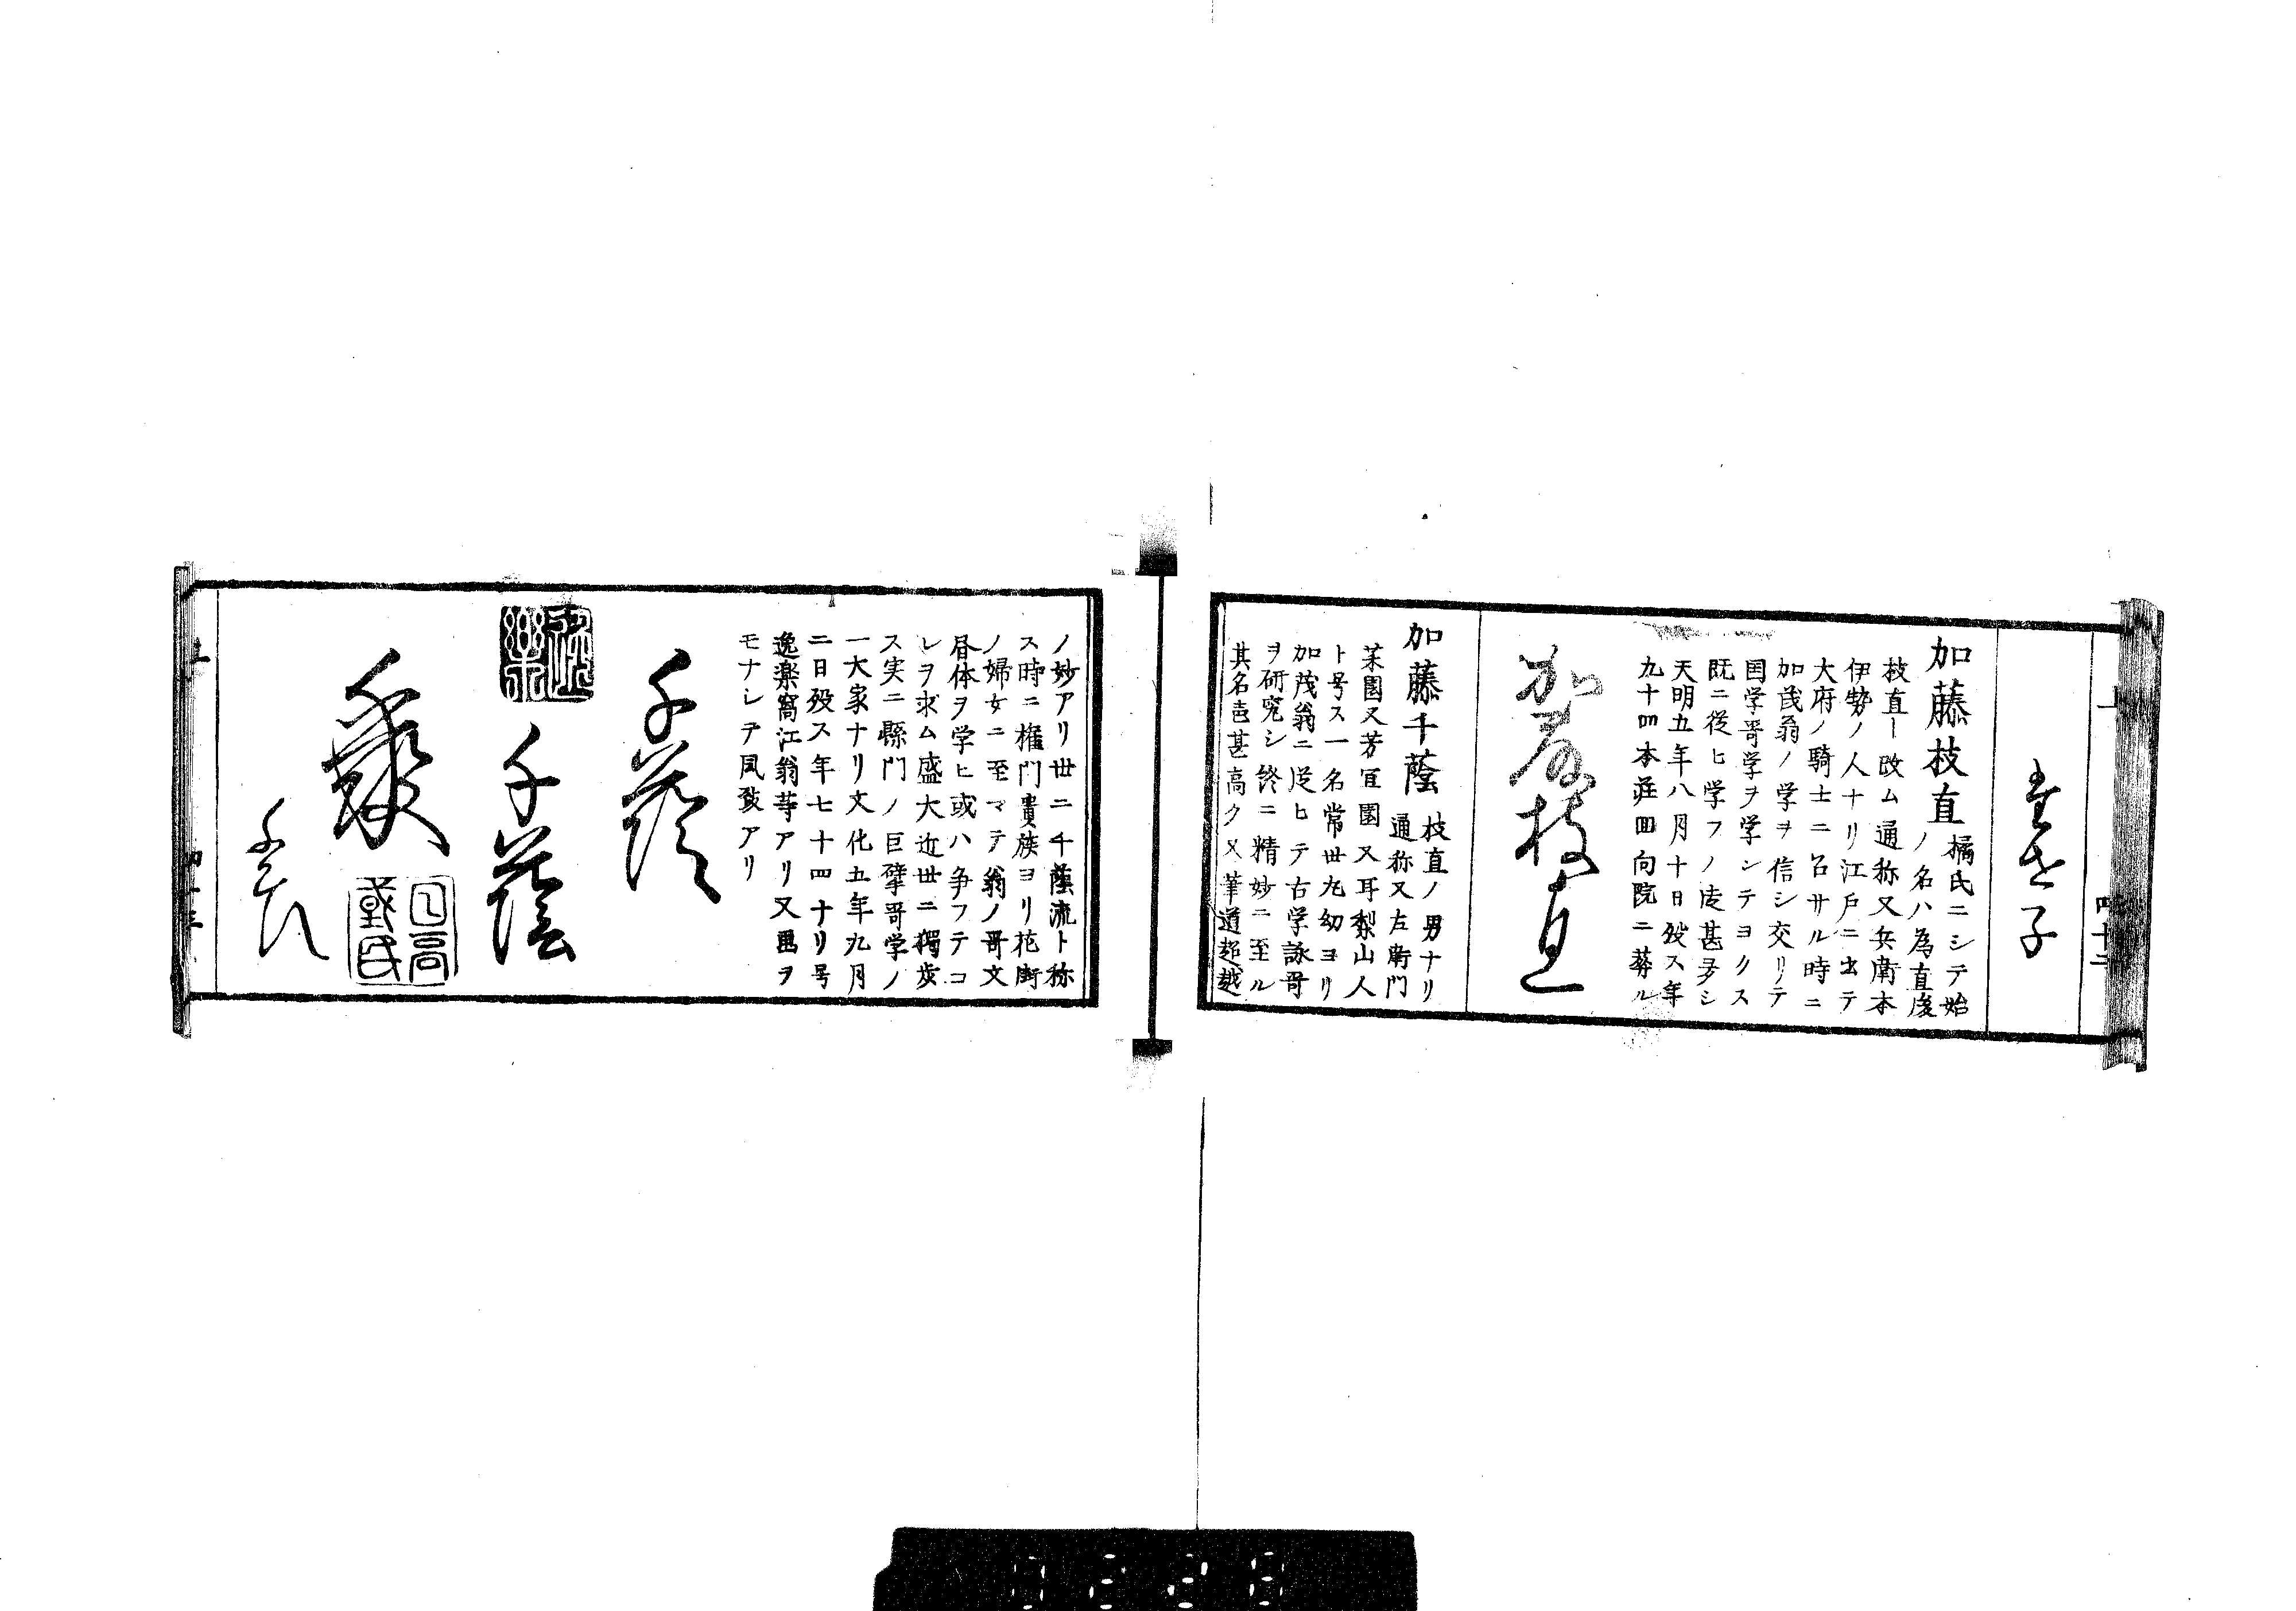 上
四十二
子
加藤枝直
橘氏ニシテ始
ノ名ハ為直後
枝直ー改ム通称又兵衛本
伊勢ノ人ナリ江戸ニ出テ
大府ノ騎士ニ召サル時ニ
加茂翁ノ学ヲ信シ交リテ
国学哥学ヲ学ンテヨクス
既ニ從ヒ学フノ徒甚多シ
天明五年八月十日殁ス年
九十四本荘回向院ニ葬ル
加藤枝直
加藤千蔭
枝直ノ男ナリ
通称又左衛門
茱園又芳宜園又耳梨山人
ト号ス一名常世丸幼ヨリ
加茂翁ニ従ヒテ古学詠哥
ヲ研究シ終ニ精妙ニ至ル
其名声甚高ク又筆道超越
ノ妙アリ世ニ千蔭流ト称
ス時ニ権門貴族ヨリ花街
ノ婦女ニ至マテ翁ノ哥文
昼体ヲ学ヒ或ハ争フテコ
レヲ求ム盛大近世ニ獨歩
ス実ニ縣門ノ巨擘哥学ノ
一大家ナリ文化五年九月
二日殁ス年七十四ナリ号
逸楽窩江翁等アリ又画ヲ
モナシテ風致アリ
千蔭
千蔭
千蔭